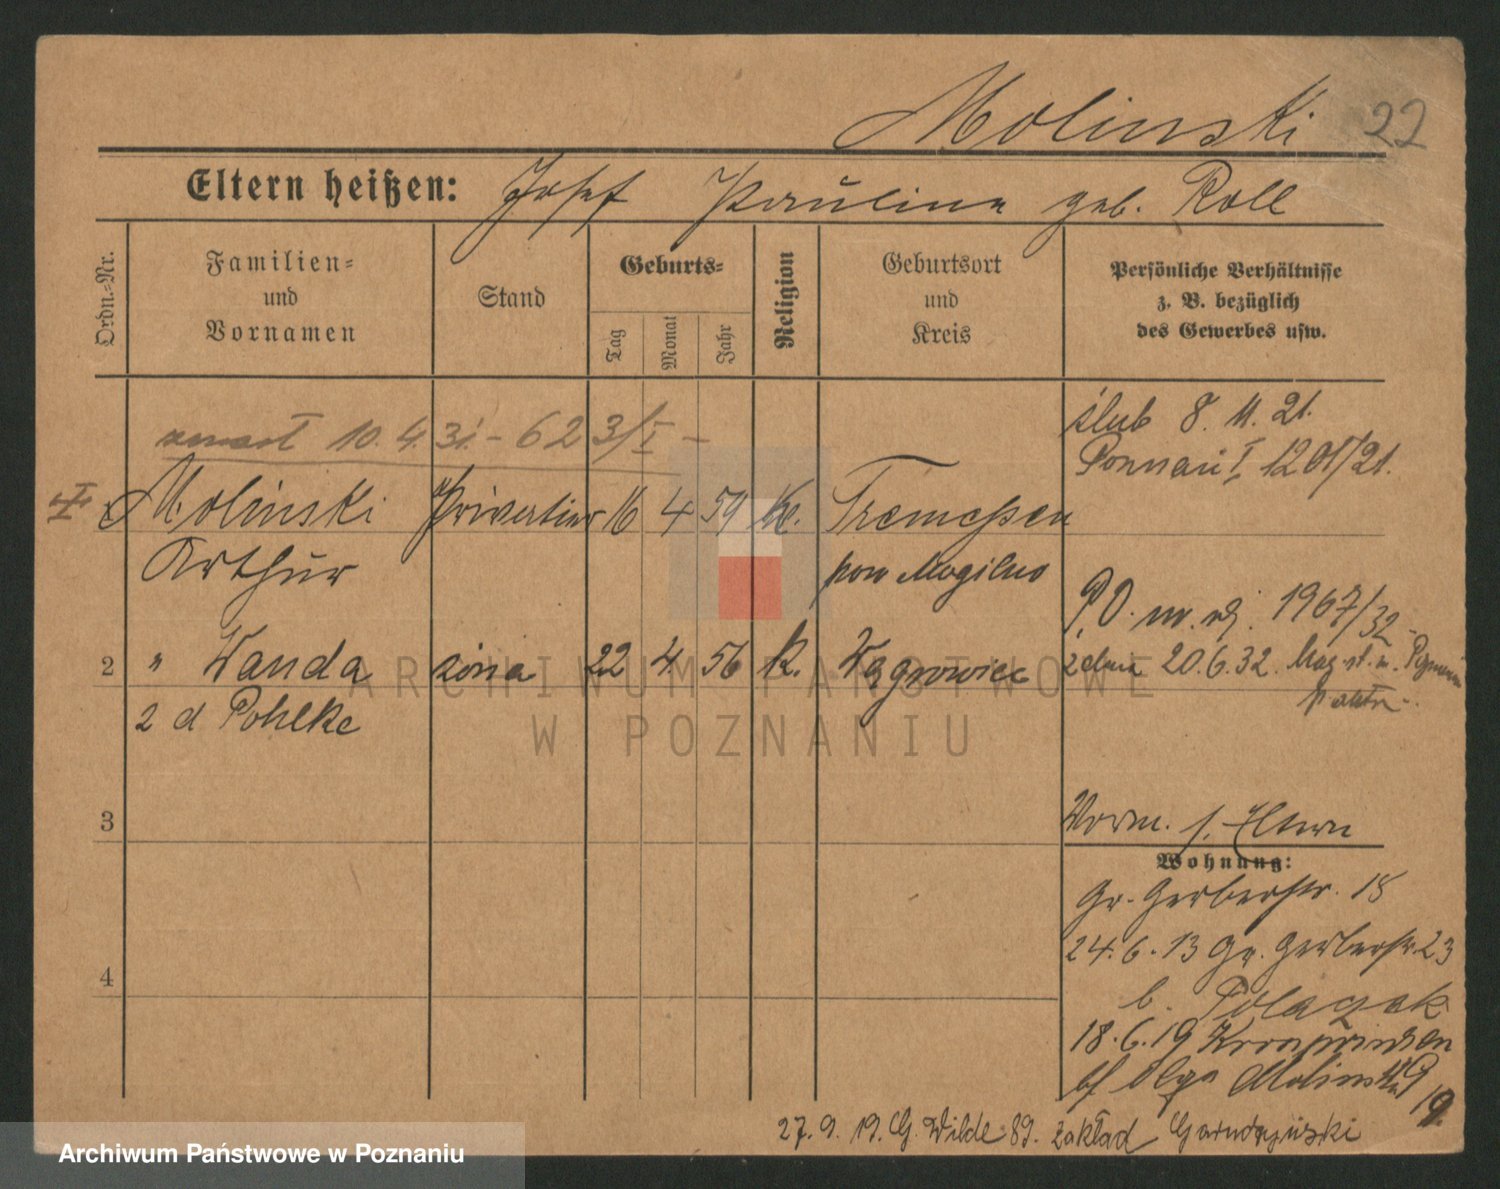 Molinski 22
Eltern heißen: Josef Paulina geb. Roll
Ordn.-Nr.
Familien-
und
Vornamen
Stand
Geburts-
Tag
Monat
Jahr
Religion
Geburtsort
und
Kreis
Persönliche Verhältnisse
z. B. bezüglich
des Gewerbes usw.
zmarł 10.4.31 - 623/I -
ślub 8.11.21.
Poznań I, 1201/21.
Molinski Privatier 16 4 59 K. Tremessen
Arthur
pow Mogilno
P.O. nr. rej. 1967/32
2 " Wanda żona 22 4. 56 K. Wągrowiec
20.6.32.
2 d Pohlke
3
Vorm. s. Eltern
Wohnung:
Gr. Gerberstr. 18
24.6.13 Gr. Gerberstr. 23
b. Polaczek
4
18.6.19 Kronprinzen
bf Olga Molinski
19.
27.9.19. G. Wilde 89. zakład
ARCHIWUM PAŃSTWOWE
W POZNANIU
Archiwum Państwowe w Poznaniu